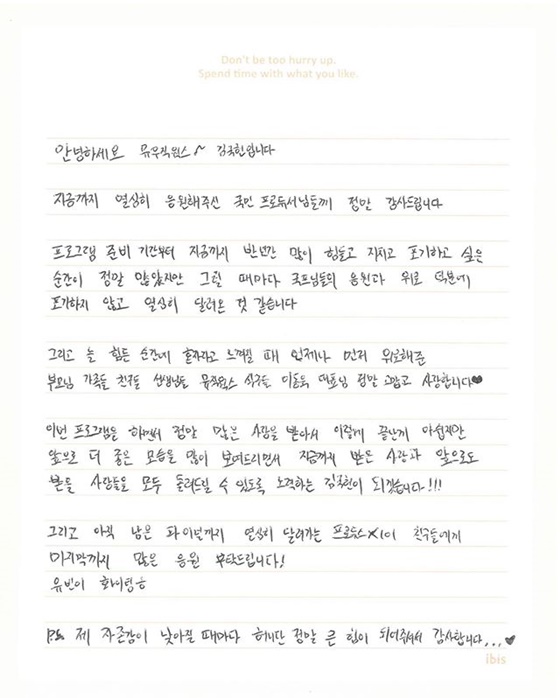 Don't be too hurry up.
Spend time with what you like.
안녕하세요 뮤직웍스~ 김국헌입니다
지금까지 열심히 응원해주신 국민 프로듀서님들께 정말 감사드립니다
프로그램 준비 기간부터 지금까지 반년간 많이 힘들고 지치고 포기하고 싶은
순간이 정말 많았지만 그럴 때마다 국프님들의 응원과 위로 덕분에
포기하지 않고 열심히 달려온 것 같습니다
그리고 늘 힘든 순간에 혼자라고 느껴질 때 언제나 먼저 위로해준
부모님 가족들 친구들 선생님들 뮤직웍스 식구들 대표님 정말 고맙고 사랑합니다♥
이번 프로그램을 하면서 정말 많은 사랑을 받아서 이렇게 끝난게 아쉽지만
앞으로 더 좋은 모습을 많이 보여드리면서 지금까지 받은 사랑과 앞으로도
받을 사랑들을 모두 돌려드릴 수 있도록 노력하는 김국헌이 되겠습니다!!!
그리고 아직 남은 파이널까지 열심히 달려가는 프로듀스X101 친구들에게
마지막까지 많은 응원 부탁드립니다!
유빈이 화이팅ㅎ
P.S 제 자존감이 낮아질 때마다 허니단 정말 큰 힘이 되어주셔서 감사합니다...♥
ibis